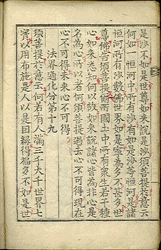 是沙不如是世尊如來說是沙須菩提於意云
何如一恒河中所有沙有如是沙等恒河是諸
恒河所有沙數佛世界如是寧爲多不甚多世
尊佛告須菩提爾所國土中所有衆生若干種
心如來悉知何以故如來說諸心皆爲非心是
名爲心所以者何須菩提過去心不可得現在
心不可得未來心不可得
法界通化分第十九
須菩提於意云何若有人滿三千大千世界七
寶以用布施是人以是因緣得福多不如是世